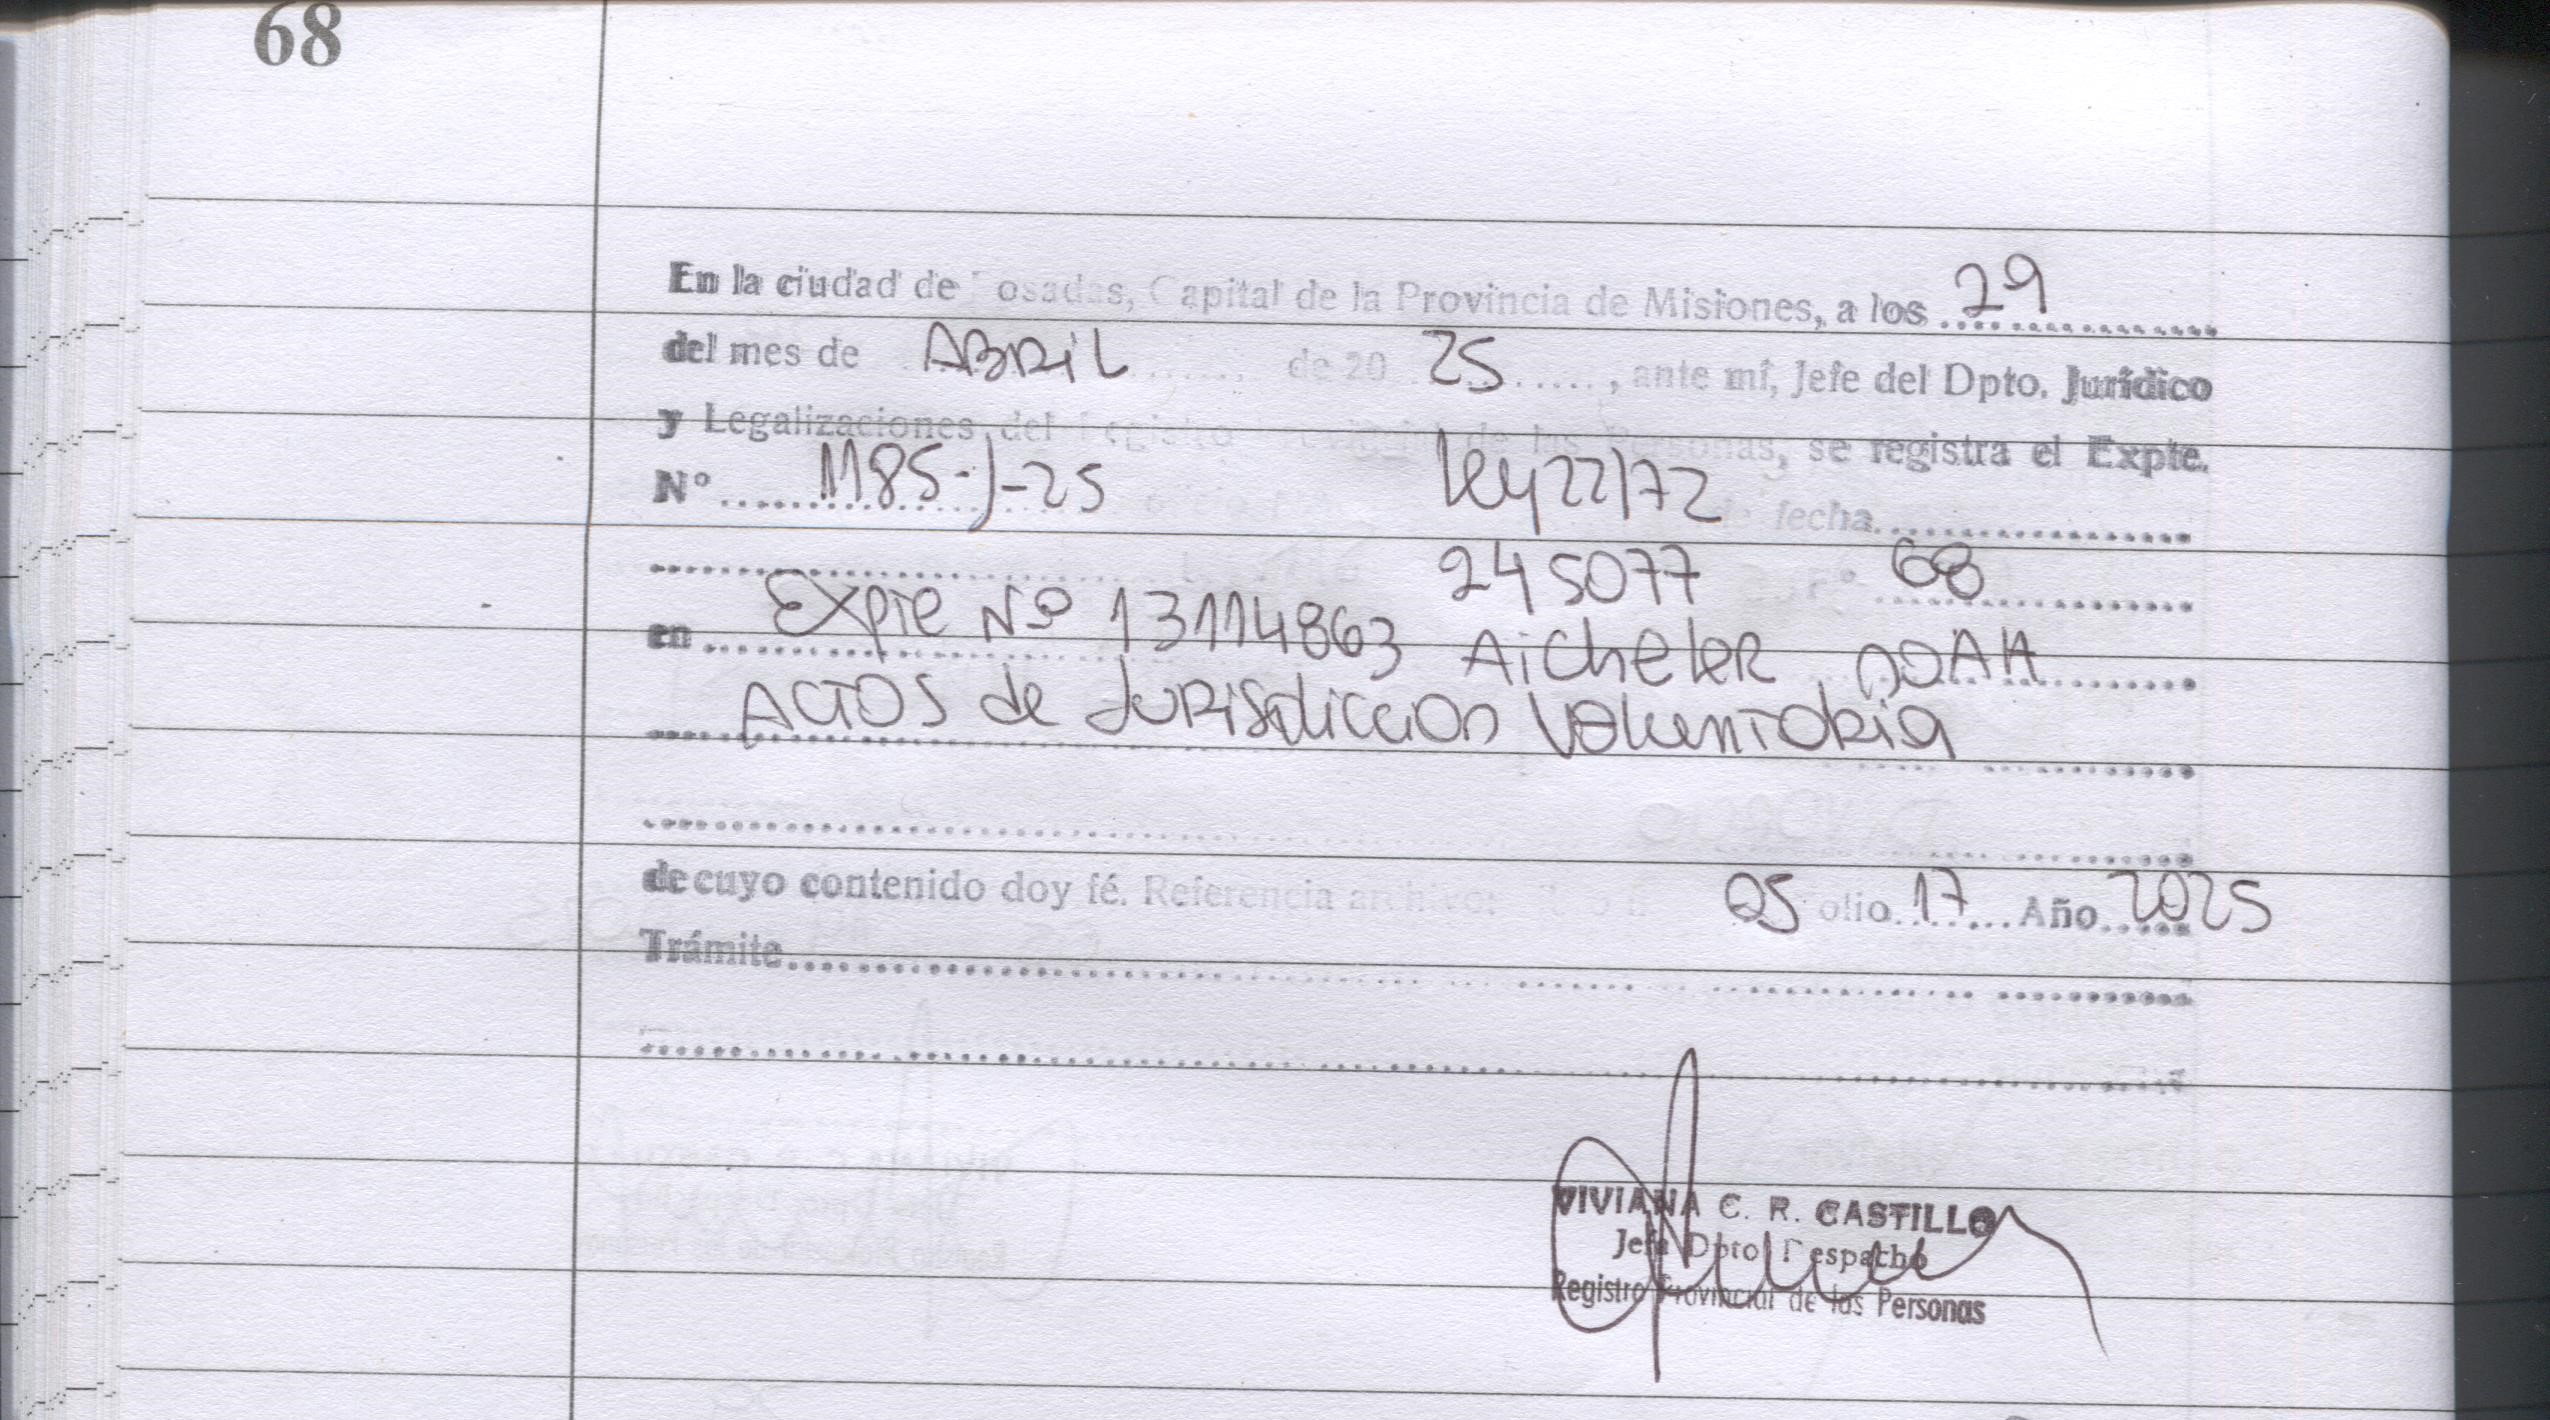 68
En la ciudad de Posadas, Capital de la Provincia de Misiones, a los 29
del mes de ABRIL de 20 25, ante mí, Jefe del Dpto. Jurídico
y Legalizaciones del Registro Provincial de las Personas, se registra el Expte.
N° 1185-J-25 Ley 22172 de fecha
245077 68
en Expte Nº 13114863 Aicheler
ACTOS de Jurisdiccion Voluntaria
de cuyo contenido doy fé. Referencia archivo: 05 olio 17 Año 2025
Trámite
VIVIANA C. R. CASTILLO
Jefa Dpto. Despacho
Registro Provincial de las Personas